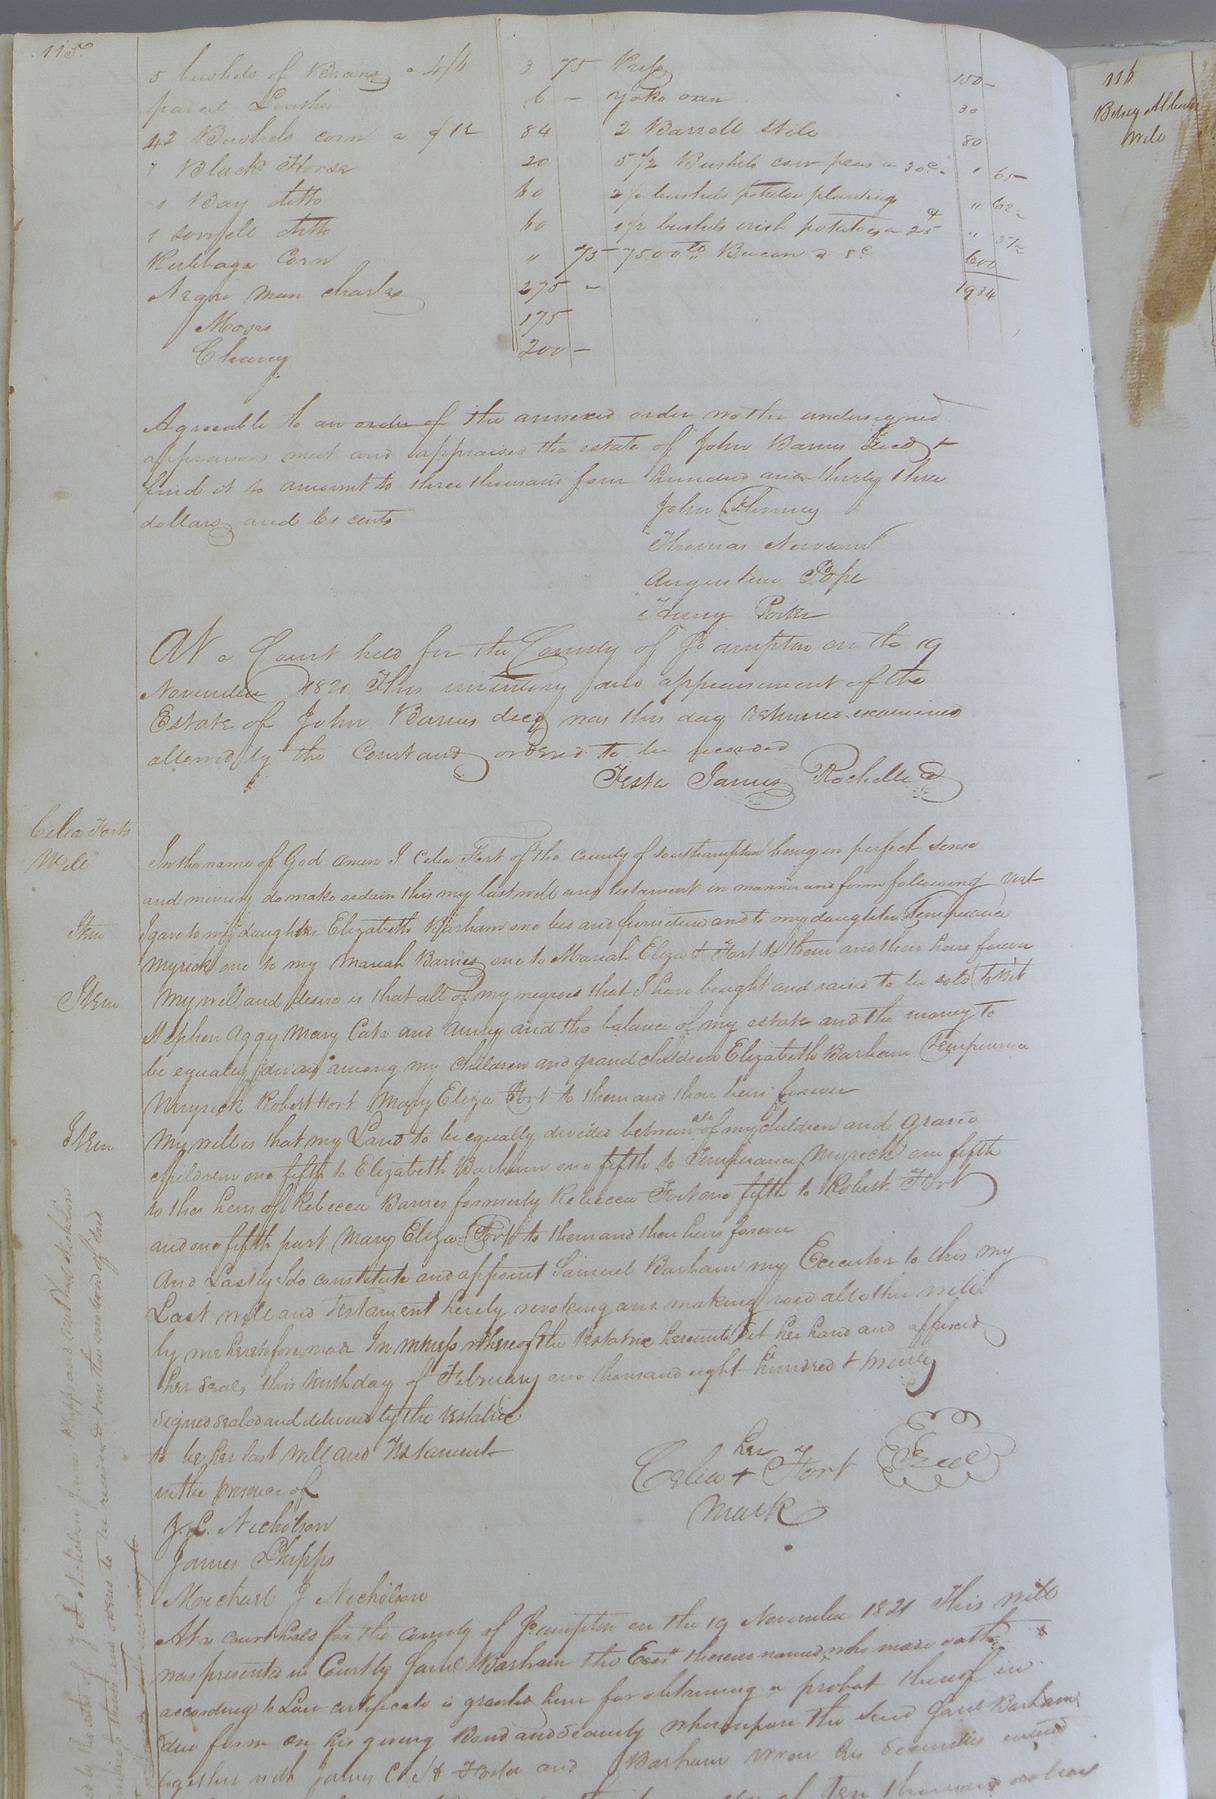 115
5 bushels of Beans a 4/6 3 75
parcel Leather 6 –
42 Bushels corn a $12 84
1 Black Horse 20
1 Bay ditto 60
1 sorrell ditto 60
Rubbage Corn " 75
Negro man Charles 275 –
Moses 175
Chany 200 –
150 –
Yoke oxen 30
2 Barrell Stile 80
5 1/2 Bushels cow peas a 30c " 65
2 1/2 bushels potatoe plantings " 62 1/2
1 1/2 bushels irish potatoes a 25 " 37 1/2
7500 lb Bacon a 8c 600
1984
Agreeable to an order of the annexed order we the undersigned
appraisers met and appraised the estate of John Barnes Decd &
find it to amount to three thousand four hundred and thirty three
dollars and 61 cents
John
Thomas Newsom
Augustine Pope
Henry Porter
At a Court held for the County of So ampton on the 19
November 1821 This inventory and appraisement of the
Estate of John Barnes decd was this day returned examined
allowed by the Court and ordered to be recorded
Teste James Rochelle C
Celia Forts
Will
In the name of God amen I Celia Fort of the county of Southampton being in perfect sense
and memory do make ordain this my last will and testament in manner and form following Viz
Item I gave to my daughter Elizabeth Barham one bed and furniture and to my daughter Temperance
Myrick one to my Mariah Barnes one to Mariah Eliza Fort to them and their heirs forever
Item My will and desire is that all of my negroes that I have bought and raised to be sold to wit
Stephen Aggy Mary Cate and Amey and the balance of my estate and the money to
be equally divided among my children and grand children Elizabeth Barham Temperance
Myrick Robert Fort Mary Eliza Fort to them and their heirs forever
Item My will is that my Land to be equally divided between all of my children and grand
children one fifth to Elizabeth Barham one fifth to Temperance Myrick one fifth
to the heirs of Rebecca Barnes formerly Rebecca Fort one fifth to Robert Fort
and one fifth part Mary Eliza Fort to them and their heirs forever
And Lastly I do constitute and appoint Samuel Barham my Executor to this my
Last will and Testament hereby revoking and making void all other wills
by me heretofore made In witness whereof the Testatrix hereunto set her hand and affixed
her Seal this day of February one thousand eight hundred & twenty
Signed sealed and delivered by the testatrix
to be her last will and Testament
in the presence of
her
Celia + Fort Seal
mark
J. C. Nicholson
James Phipps
Michael J Nicholson
At a court held for the County of So ampton on the 19 November 1821 This will
was presented in Court by Saml Barham the Exor therein named who made oath
according to Law certificate is granted him for obtaining a probat thereof in
due form on his giving Bond and Security whereupon the said Saml Barham
together with James C and Barham were his Securities entered
of Ten thousand dollars
116
Betsey
Will